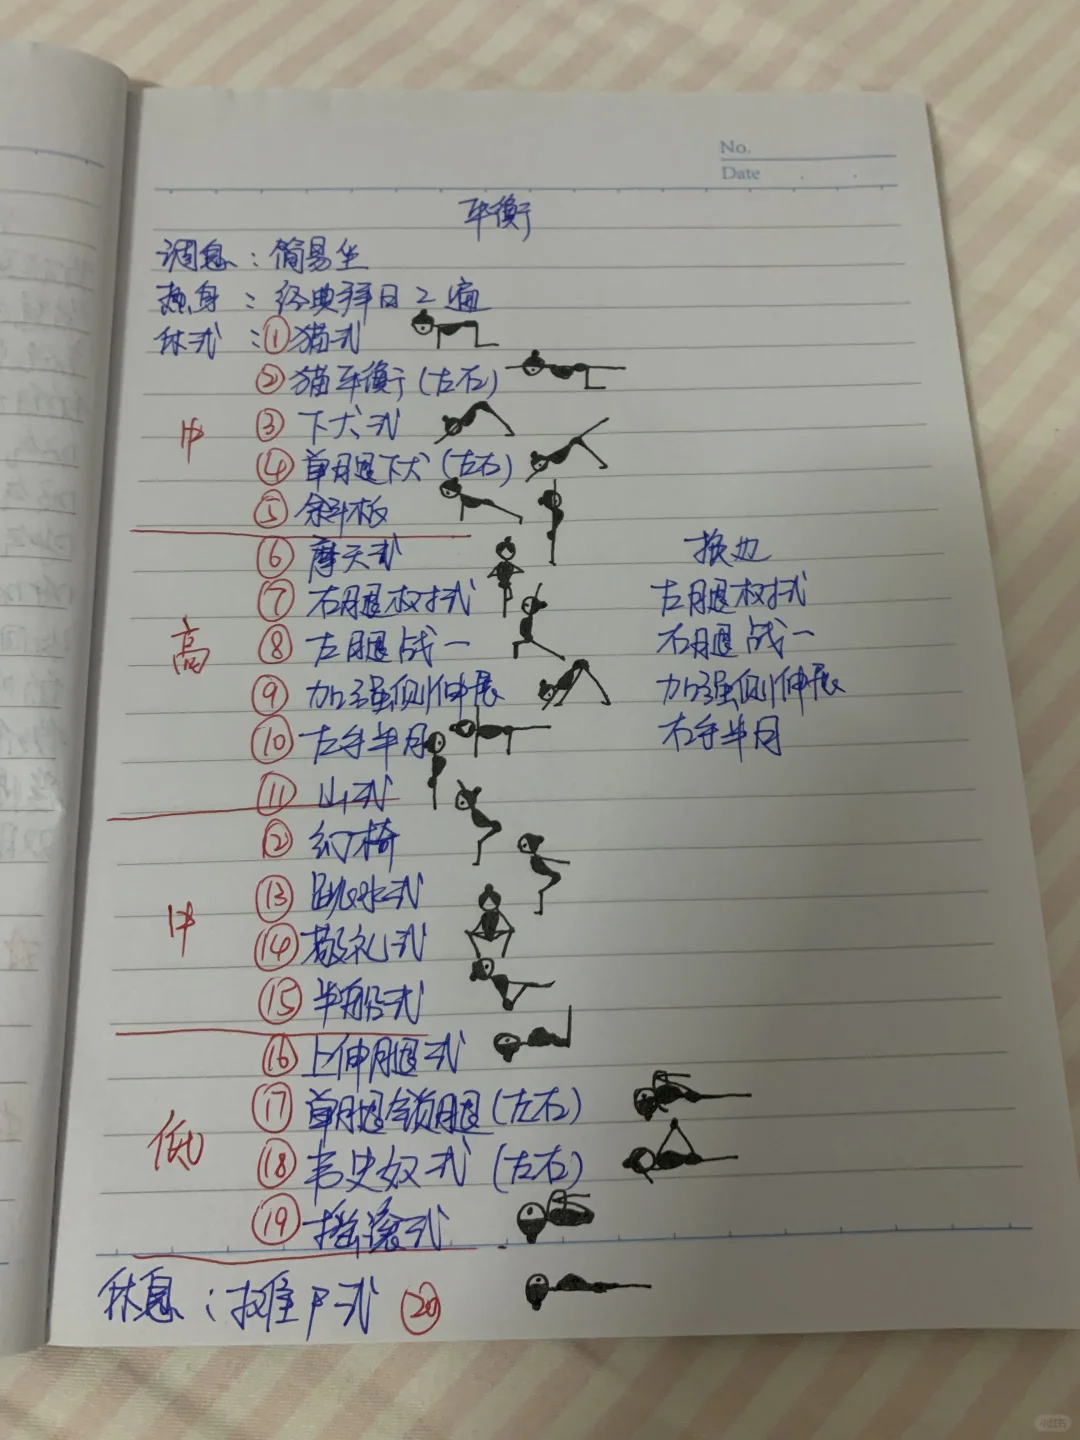 No.
Date
平衡
调息：简易坐
热身：经典拜日2遍
体式：①猫式
②猫平衡(左右)
中 ③下犬式
④单腿下犬(左右)
⑤斜板
⑥摩天式 换边
⑦右腿树式 左腿树式
高 ⑧左腿战一 右腿战一
⑨加强侧伸展 加强侧伸展
⑩左手半月 右手半月
⑪山式
②幻椅
⑬跳水式
中 ⑭敬礼式
⑮半船式
⑯上伸腿式
⑰单腿锁腿(左右)
低 ⑱韦史奴式(左右)
⑲摇滚式
休息：摊尸式⑳
小红书